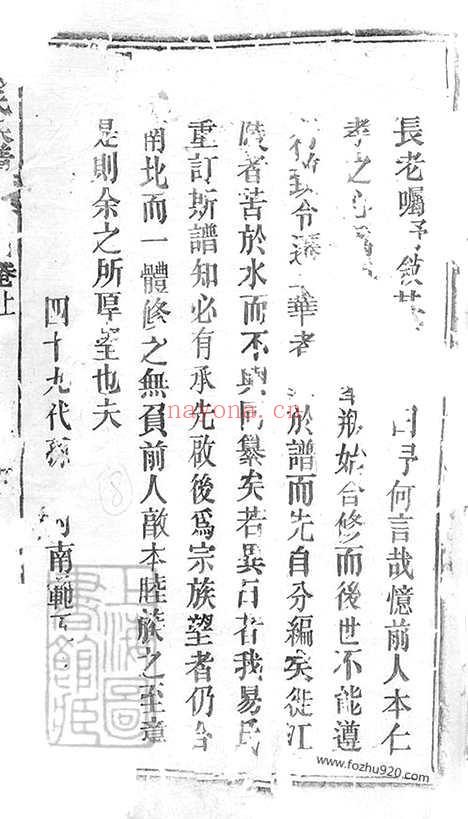 長老囑予 曰予何言哉憶前人本仁
孝之 始合修而後世不能遵
行 令 華者 於譜而先自分編矣徙江
陵者苦於水而不與同纂矣若異日者我易氏
重訂斯譜知必有承先啟後為宗族望者仍合
南北而一體修之無負前人敵本睦族之至意
是則余之所厚望也夫
四十九代孫 南範
氏譜 卷上
nayona.cn
8
上海圖書館藏
www.fozhu920.com